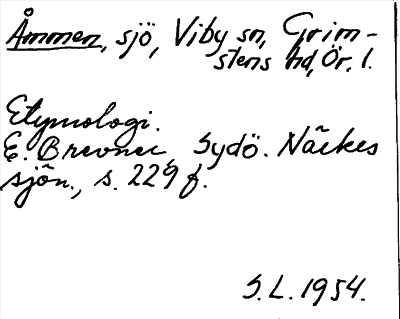 Åmmen, sjö, Viby sn, Grim-
stens hd, Ör. l.
Etymologi.
E. Brevner, Sydö. Närkes
sjön., s. 229 f.
S.L. 1954.